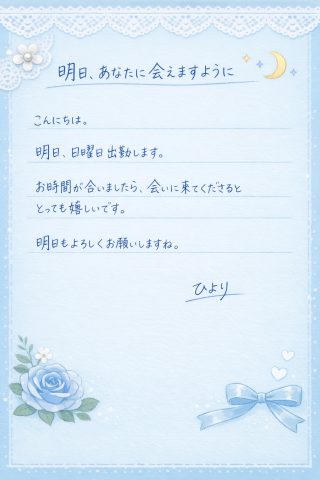 明日、あなたに会えますように
こんにちは。
明日、日曜日出勤します。
お時間が合いましたら、会いに来てくださると
とっても嬉しいです。
明日もよろしくお願いしますね。
ひより